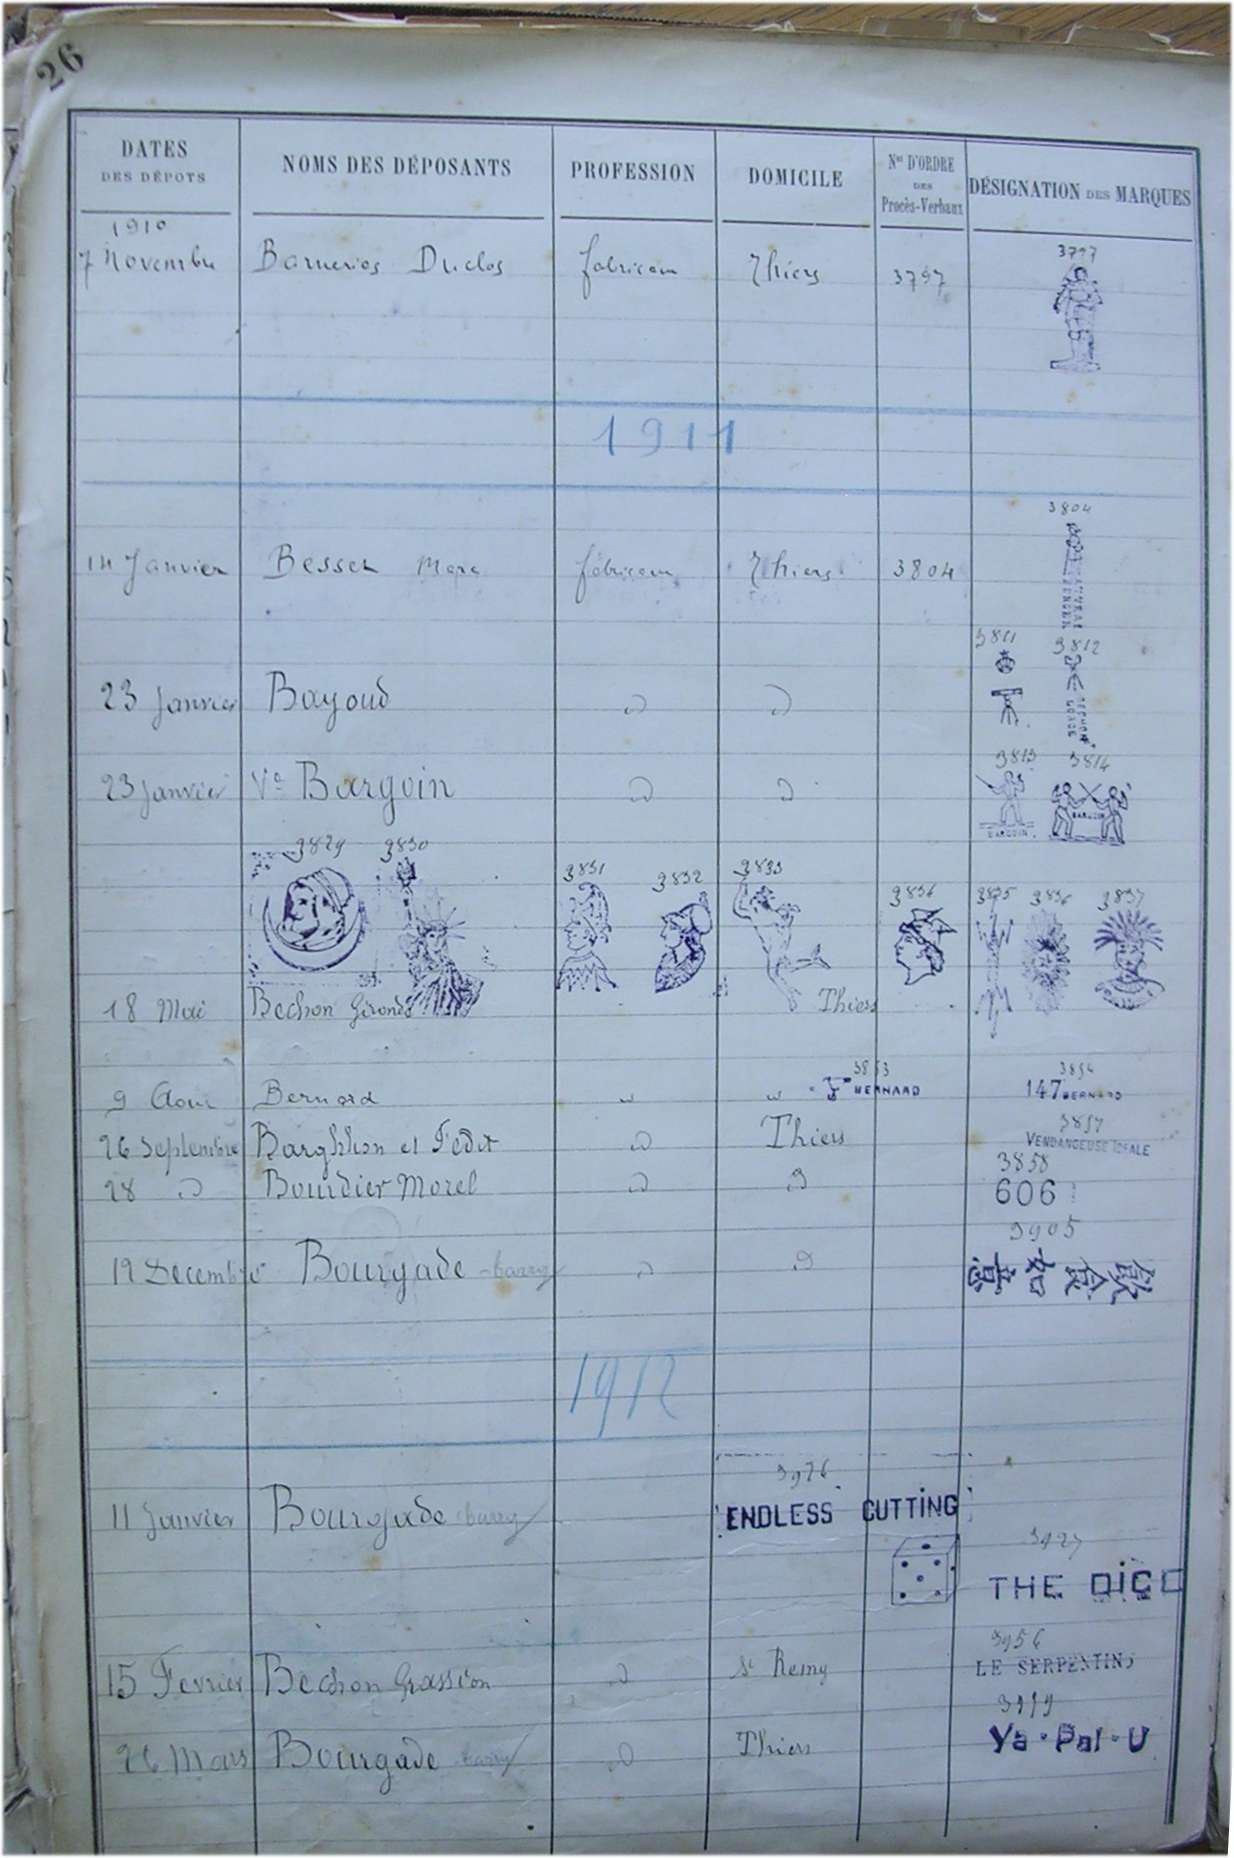 26
DATES DES DÉPOTS NOMS DES DÉPOSANTS PROFESSION DOMICILE Nos D'ORDRE DES Procès-Verbaux DÉSIGNATION DES MARQUES
1910
3797
7 Novembre Duclos fabricant Thiers 3797
1911
3804
14 Janvier Besset Marc fabricant Thiers 3804
3811 3812
23 Janvier Bayoud
3813 3814
23 Janvier Ve Bargoin
BARGOIN BARGOIN
3829 3830 3831 3832 3833 3834 3835 3836 3837
18 Mai Bechon Gironde Thiers
3853 3854
9 Aout Bernard BERNARD 147 BERNARD
3857
26 Septembre et Fedit Thiers VENDANGEUSE IDEALE
3858
28 Bourdier Morel 606
3905
19 Decembre Bourgade barry 意如食飲
1912
3926
11 Janvier Bourgade barry ENDLESS CUTTING
3927
THE DICE
3956
15 Fevrier Bechon Grassion St Remy LE SERPENTIN
26 Mars Bourgade barry Thiers Ya-Pal-U